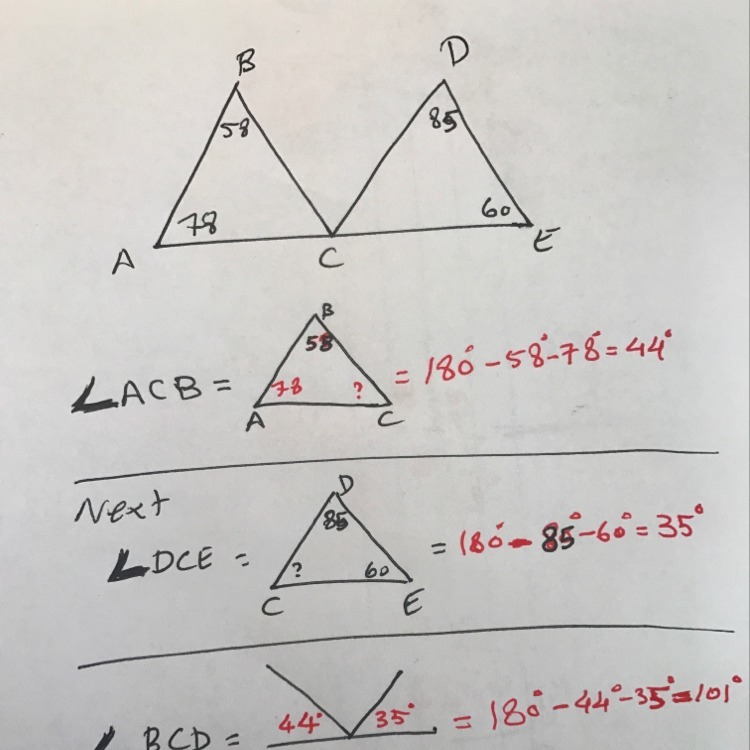 B D
58 85
78 60
A C E
B
58
∠ACB = 78 ? = 180° - 58° - 78° = 44°
A C
Next
D
85
∠DCE = ? 60 = 180° - 85° - 60° = 35°
C E
∠BCD = 44° 35° = 180° - 44° - 35° = 101°